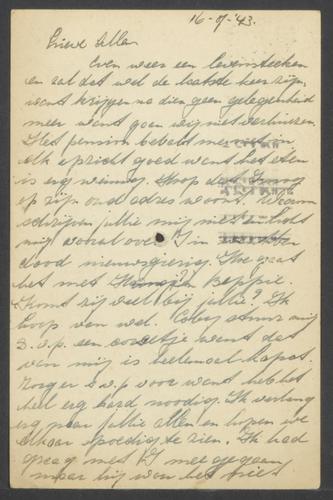 16-8-'43.
Lieve Allen
Even weer een levensteeken
en zal dat wel de laatste keer zijn,
want krijgen na dien geen gelegenheid
meer want gaan wij met verhuizen.
Het pension bevalt me niet in
elk opzicht goed want het eten
is erg weinig. Hoop dat
op zijn oud adres woont. Waarom
schrijven jullie mij niet en licht
mij vooral over in
dood nieuwsgierig. Hoe gaat
het met Beppie.
Komt zij veel bij jullie? Ik
hoop van wel. Coby stuur mij
s.v.p. een want dat
van mij is heelemaal kapot.
Zorger s.v.p. voor want heb het
heel erg hard noodig. Ik verlang
erg naar jullie allen en hopen we
elkaar spoedig te zien. Ik had
graag met mee gegaan
maar hij won het niet